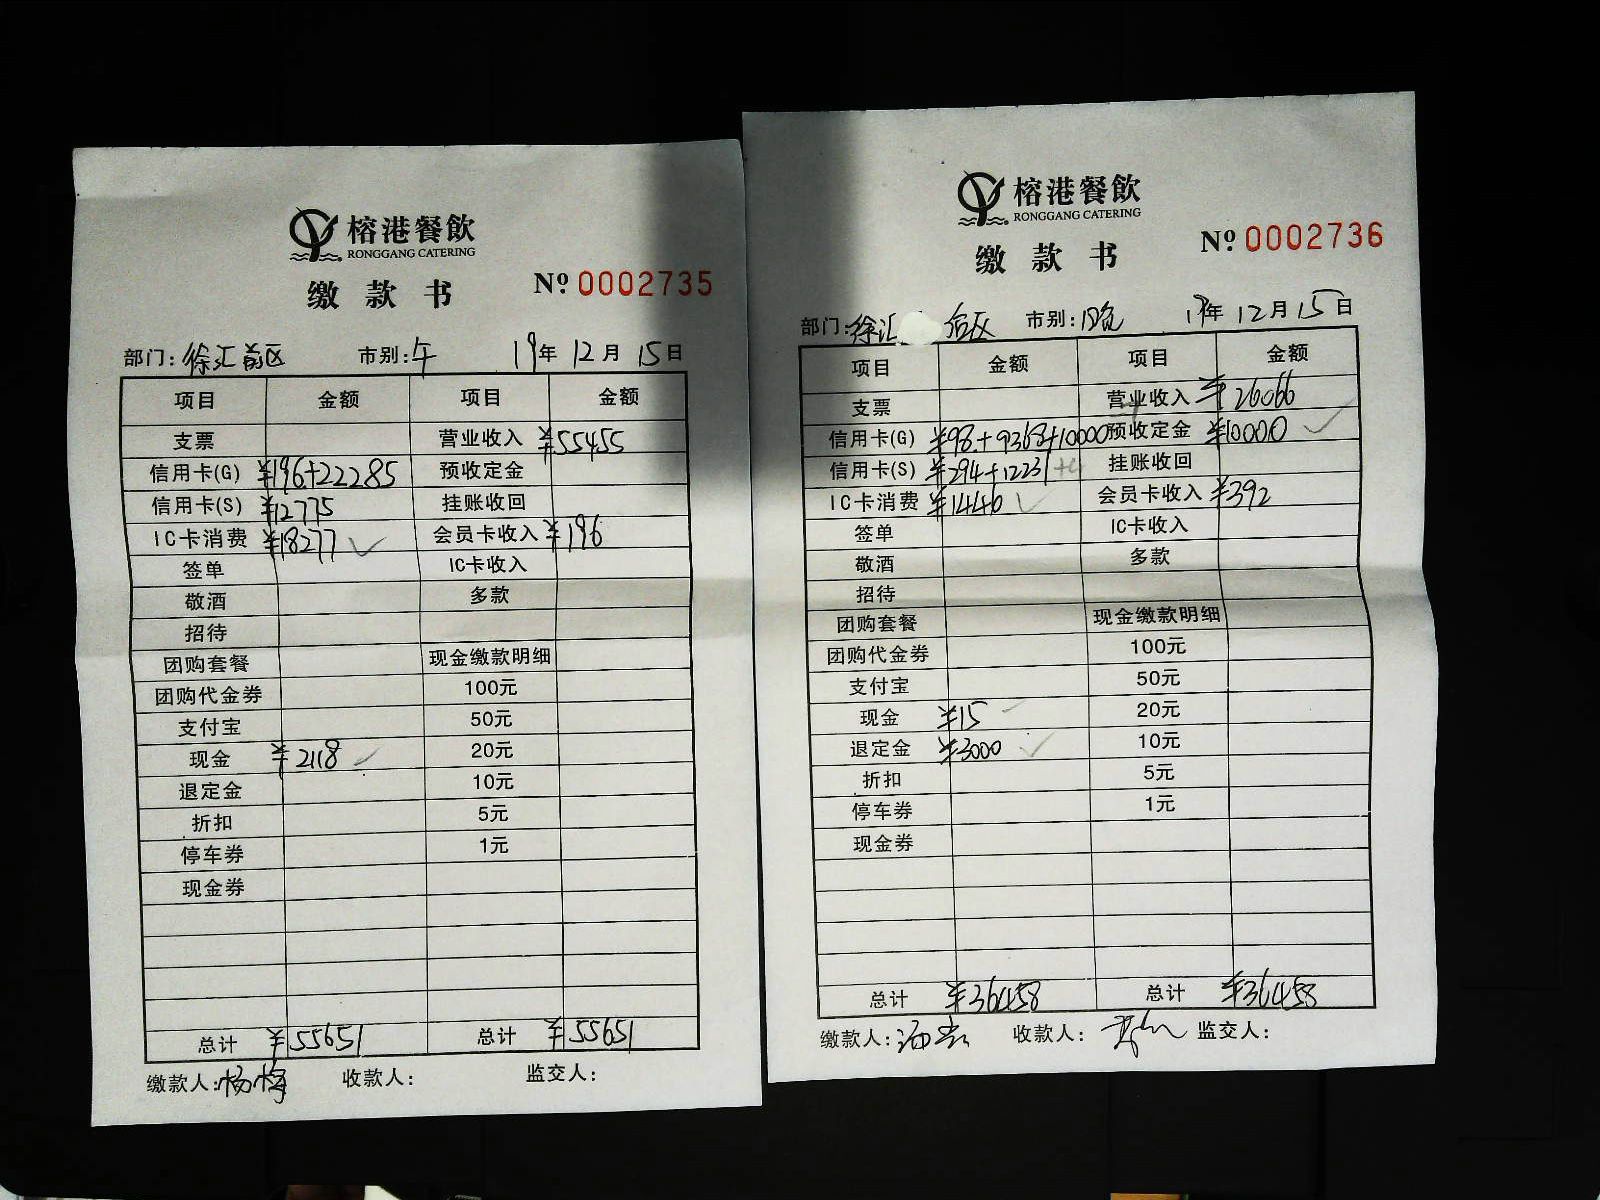 榕港餐飲
RONGGANG CATERING
缴款书
Nº 0002735
部门：徐汇前区 市别：午 19年12月15日
项目 金额 项目 金额
支票 营业收入 ¥55455
信用卡(G) ¥196+22285 预收定金
信用卡(S) ¥12775 挂账收回
IC卡消费 ¥18277 会员卡收入 ¥196
签单 IC卡收入
敬酒 多款
招待
团购套餐 现金缴款明细
团购代金券 100元
支付宝 50元
现金 ¥2118 20元
退定金 10元
折扣 5元
停车券 1元
现金券
总计 ¥55651 总计 ¥55651
缴款人：杨梅 收款人： 监交人：
榕港餐飲
RONGGANG CATERING
缴款书
Nº 0002736
部门：徐汇 后区 市别： 19年12月15日
项目 金额 项目 金额
支票 营业收入 ¥26066
信用卡(G) ¥98+9368+10000 预收定金 ¥10000
信用卡(S) ¥294+12231 挂账收回
IC卡消费 ¥1440 会员卡收入 ¥392
签单 IC卡收入
敬酒 多款
招待
团购套餐 现金缴款明细
团购代金券 100元
支付宝 50元
现金 ¥15 20元
退定金 ¥3000 10元
折扣 5元
停车券 1元
现金券
总计 ¥36458 总计 ¥36458
缴款人： 收款人： 监交人：